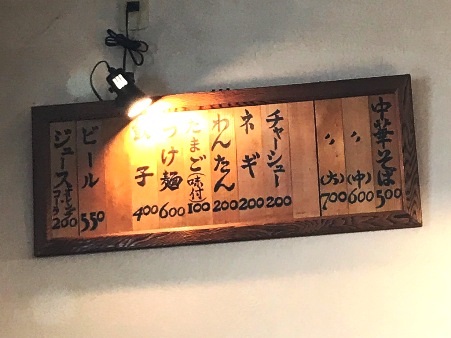 中華そば 500
〃 (中) 600
〃 (大) 700
チャーシュー 200
ネギ 200
わんたん 200
たまご(味付) 100
つけ麺 600
子 400
ビール 550
ジュース 200